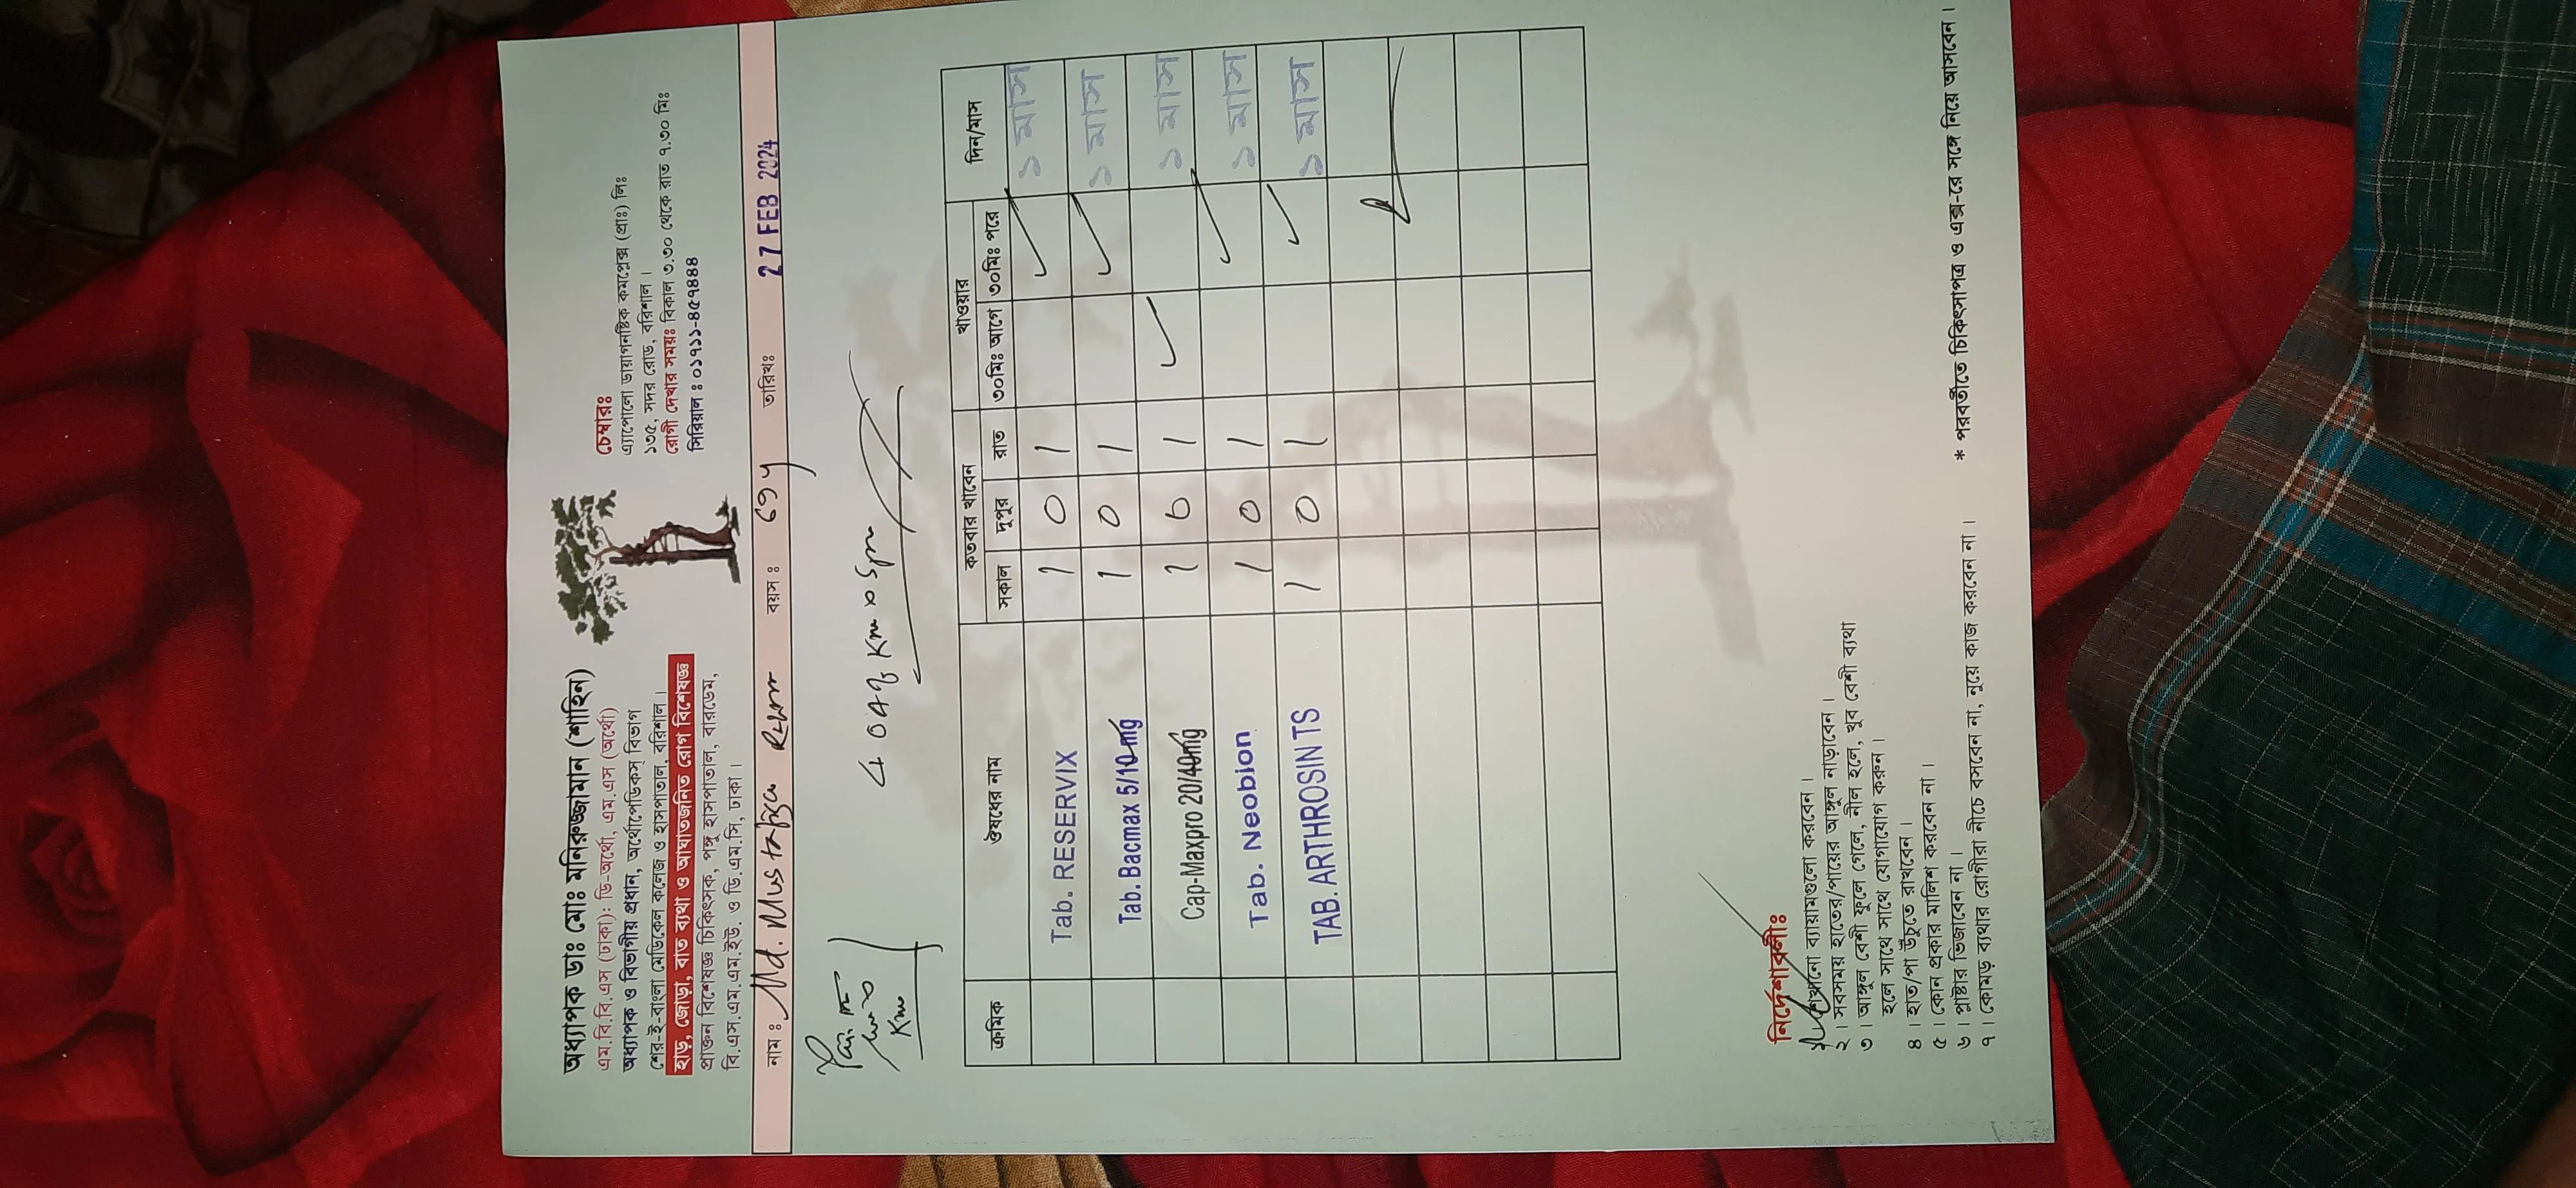 অধ্যাপক ডাঃ মোঃ মনিরুজ্জামান (শাহিন)
এম.বি.বি.এস (ঢাকা): ডি-অর্থো, এম.এস (অর্থো)
অধ্যাপক ও বিভাগীয় প্রধান, অর্থোপেডিকস্ বিভাগ
শের-ই-বাংলা মেডিকেল কলেজ ও হাসপাতাল, বরিশাল।
হাড়, জোড়া, বাত ব্যথা ও আঘাতজনিত রোগ বিশেষজ্ঞ
প্রাক্তন বিশেষজ্ঞ চিকিৎসক, পঙ্গু হাসপাতাল, বারডেম,
বি.এস.এম.এম.ইউ. ও ডি.এম.সি, ঢাকা।
চেম্বারঃ
এ্যাপোলো ডায়াগনষ্টিক কমপ্লেক্স (প্রাঃ) লিঃ
১৩৫, সদর রোড, বরিশাল।
রোগী দেখার সময়ঃ বিকাল ৩.৩০ থেকে রাত ৭.৩০ মিঃ
সিরিয়াল : ০১৭১১-৪৫৭৪৪৪
নাম : Md. বয়স : 69 y তারিখঃ 27 FEB 2024
ক্রমিক ঔষধের নাম কতবার খাবেন খাওয়ার দিন/মাস
সকাল দুপুর রাত ৩০মিঃ আগে ৩০মিঃ পরে
Tab. RESERVIX 1 0 1 ✓ ১ মাস
Tab. Bacmax 5/10mg 1 0 1 ✓ ১ মাস
Cap-Maxpro 20/40mg 1 0 1 ✓ ১ মাস
Tab. Neobion 1 0 1 ✓ ১ মাস
TAB. ARTHROSIN TS 1 0 1 ✓ ১ মাস
নির্দেশাবলীঃ
১। শেখানো ব্যায়ামগুলো করবেন।
২। সবসময় হাতের/পায়ের আঙ্গুল নাড়াবেন।
৩। আঙ্গুল বেশী ফুলে গেলে, নীল হলে, খুব বেশী ব্যথা
হলে সাথে সাথে যোগাযোগ করুন।
৪। হাত/পা উঁচুতে রাখবেন।
৫। কোন প্রকার মালিশ করবেন না।
৬। প্লাষ্টার ভিজাবেন না।
৭। কোমড় ব্যথার রোগীরা নীচে বসবেন না, নুয়ে কাজ করবেন না।
* পরবর্তীতে চিকিৎসাপত্র ও এক্স-রে সঙ্গে নিয়ে আসবেন।